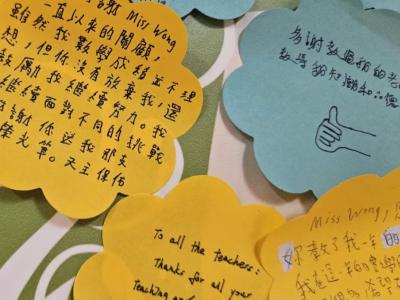 謝 Miss Wong
一直以來的關顧,
雖然我數學成績並不理
想,但你沒有放棄我,還
鼓勵我繼續努力。我
繼續面對不同的挑戰
謝你送我那支
螢光筆。天主保佑
多謝教過我的老
教導我知識和
To all the teachers:
Thanks for all your
Teaching
Miss Wong,
妳教了我一年的
我在這一年的